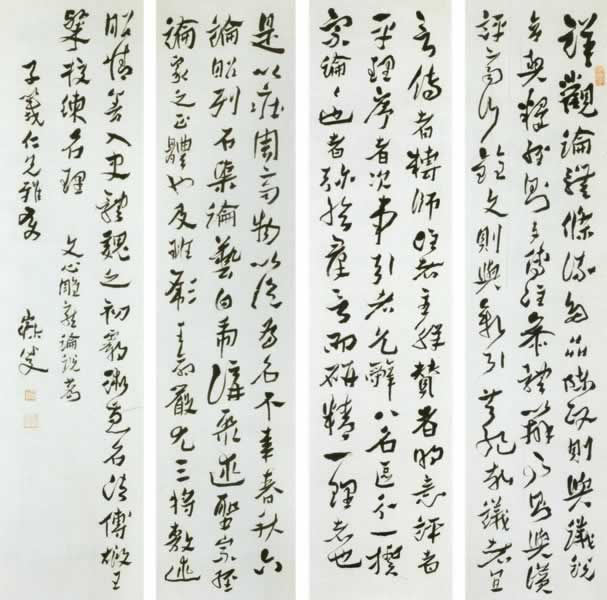 詳觀論體條流多品陳政則與議說
合契釋經則與傳注參體辨史則與讚
評齊行銓文則與敘引共紀故議者宜
言傳者轉師注者主解贊者明意評者
平理序者次事引者胤辭八名區分一揆
宗論論也者彌綸羣言而研精一理者也
是以莊周齊物以論為名不韋春秋六
論昭列石渠論藝白虎講聚述聖宗經
論家之正體也及班彪王命嚴尤三將敷述
昭情善入史體魏之初霸術兼名法傅嘏王
粲校練名理 文心雕龍論說篇
子義仁兄雅
叟